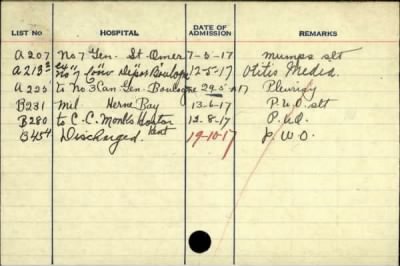 LIST No HOSPITAL DATE OF ADMISSION REMARKS
A207 No 7 Gen. St. Omer 7-5-17 mumps slt
A213 No 7 Conv Depot Boulogne 12-5-17 Otitis Media.
A225 to No 3 Can Gen. Boulogne 29-5-17 Pleurisy
B231 Mil Herne Bay 13-6-17 P.U.O. slt
B280 to C.C. Monks Horton Kent 12-8-17 P.U.O.
B454 Discharged. 19-10-17 P.U.O.